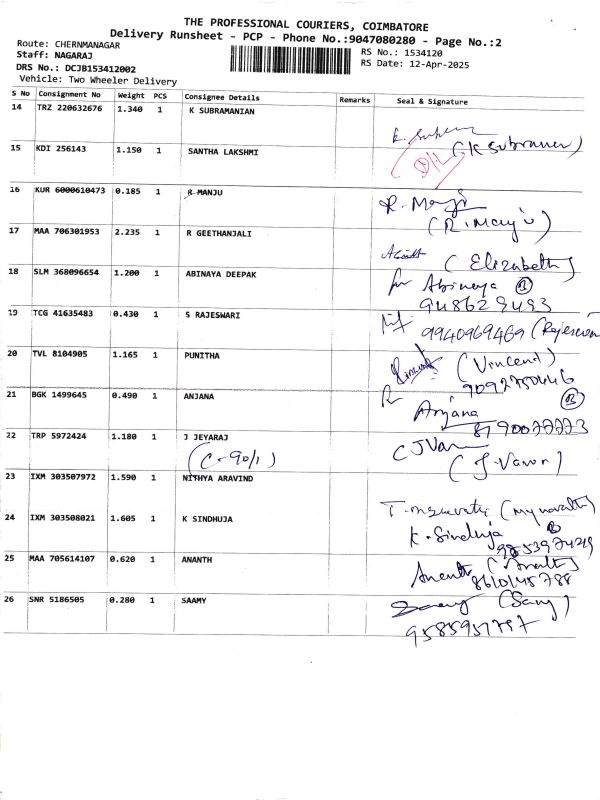 THE PROFESSIONAL COURIERS, COIMBATORE
Delivery Runsheet - PCP - Phone No.:9047080280 - Page No.:2
Route: CHERNMANAGAR
Staff: NAGARAJ
DRS No.: DCJB153412002
Vehicle: Two Wheeler Delivery
RS No.: 1534120
RS Date: 12-Apr-2025
S No Consignment No Weight PCS Consignee Details Remarks Seal & Signature
14 TRZ 220632676 1.340 1 K SUBRAMANIAN
15 KDI 256143 1.150 1 SANTHA LAKSHMI
16 KUR 6000610473 0.185 1 R MANJU
R. Manju
(R. Manju)
17 MAA 706301953 2.235 1 R GEETHANJALI
(Elizabeth)
18 SLM 368096654 1.200 1 ABINAYA DEEPAK
for Abinaya
948629493
19 TCG 41635483 0.430 1 S RAJESWARI
9940969469 (Rajeswari
20 TVL 8104905 1.165 1 PUNITHA
(Vincent)
9092750446
21 BGK 1499645 0.490 1 ANJANA
Anjana
8190077773
22 TRP 5972424 1.180 1 J JEYARAJ
(C-90/1)
23 IXM 303507972 1.590 1 NITHYA ARAVIND
24 IXM 303508021 1.605 1 K SINDHUJA
K. Sindhuja
25 MAA 705614107 0.620 1 ANANTH
Ananth (Ananth)
8610145788
26 SNR 5186505 0.280 1 SAAMY
(Samy)
9585951797